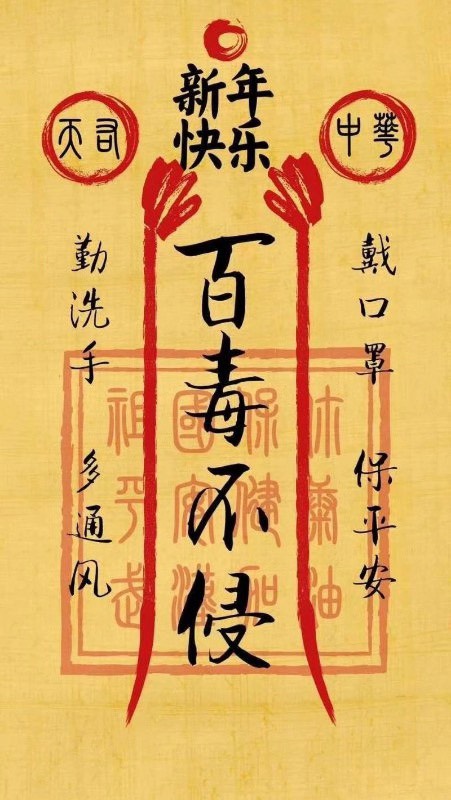 新年
快乐
天司
中華
百毒不侵
戴口罩 保平安
勤洗手 多通风